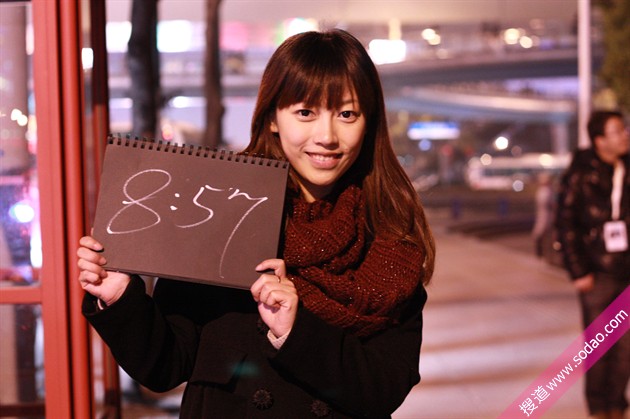 8:57
搜道 www.sodao.com